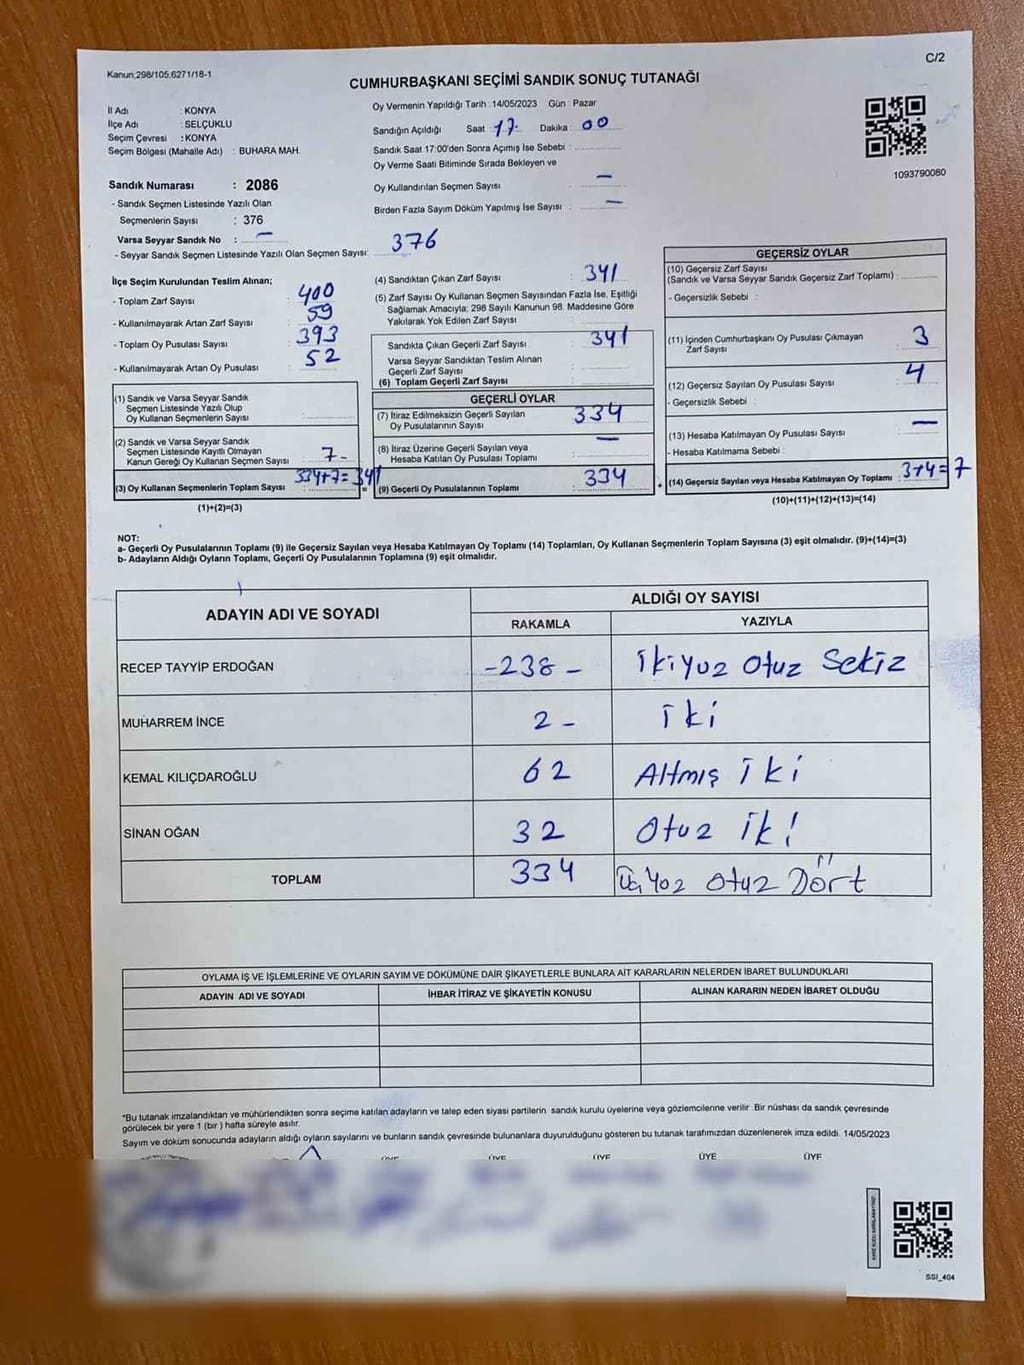 C/2
Kanun,298/105,6271/18-1
CUMHURBAŞKANI SEÇİMİ SANDIK SONUÇ TUTANAĞI
İl Adı : KONYA
İlçe Adı : SELÇUKLU
Seçim Çevresi : KONYA
Seçim Bölgesi (Mahalle Adı) : BUHARA MAH.
Sandık Numarası : 2086
- Sandık Seçmen Listesinde Yazılı Olan
Seçmenlerin Sayısı : 376
Varsa Seyyar Sandık No : —
- Seyyar Sandık Seçmen Listesinde Yazılı Olan Seçmen Sayısı: 376
Oy Vermenin Yapıldığı Tarih :14/05/2023 Gün : Pazar
Sandığın Açıldığı Saat : 17. Dakika : 00
Sandık Saat 17:00'den Sonra Açımış İse Sebebi :
Oy Verme Saati Bitiminde Sırada Bekleyen ve
Oy Kullandırılan Seçmen Sayısı : —
Birden Fazla Sayım Döküm Yapılmış İse Sayısı : —
1093790080
İlçe Seçim Kurulundan Teslim Alınan;
- Toplam Zarf Sayısı : 400
- Kullanılmayarak Artan Zarf Sayısı : 59
- Toplam Oy Pusulası Sayısı : 393
- Kullanılmayarak Artan Oy Pusulası : 52
(1) Sandık ve Varsa Seyyar Sandık
Seçmen Listesinde Yazılı Olup
Oy Kullanan Seçmenlerin Sayısı :
(2) Sandık ve Varsa Seyyar Sandık
Seçmen Listesinde Kayıtlı Olmayan
Kanun Gereği Oy Kullanan Seçmen Sayısı : 7-
(3) Oy Kullanan Seçmenlerin Toplam Sayısı : 334+7=341
(1)+(2)=(3)
(4) Sandıktan Çıkan Zarf Sayısı : 341
(5) Zarf Sayısı Oy Kullanan Seçmen Sayısından Fazla İse, Eşitliği
Sağlamak Amacıyla; 298 Sayılı Kanunun 98. Maddesine Göre
Yakılarak Yok Edilen Zarf Sayısı :
Sandıkta Çıkan Geçerli Zarf Sayısı : 341
Varsa Seyyar Sandıktan Teslim Alınan
Geçerli Zarf Sayısı :
(6) Toplam Geçerli Zarf Sayısı :
GEÇERLİ OYLAR
(7) İtiraz Edilmeksizin Geçerli Sayılan
Oy Pusulalarının Sayısı : 334
(8) İtiraz Üzerine Geçerli Sayılan veya
Hesaba Katılan Oy Pusulası Toplamı : —
(9) Geçerli Oy Pusulalarının Toplamı : 334
GEÇERSİZ OYLAR
(10) Geçersiz Zarf Sayısı
(Sandık ve Varsa Seyyar Sandık Geçersiz Zarf Toplamı) :
- Geçersizlik Sebebi :
(11) İçinden Cumhurbaşkanı Oy Pusulası Çıkmayan
Zarf Sayısı : 3
(12) Geçersiz Sayılan Oy Pusulası Sayısı : 4
- Geçersizlik Sebebi :
(13) Hesaba Katılmayan Oy Pusulası Sayısı : —
- Hesaba Katılmama Sebebi :
(14) Geçersiz Sayılan veya Hesaba Katılmayan Oy Toplamı : 3+4=7
(10)+(11)+(12)+(13)=(14)
NOT:
a- Geçerli Oy Pusulalarının Toplamı (9) ile Geçersiz Sayılan veya Hesaba Katılmayan Oy Toplamı (14) Toplamları, Oy Kullanan Seçmenlerin Toplam Sayısına (3) eşit olmalıdır. (9)+(14)=(3)
b- Adayların Aldığı Oyların Toplamı, Geçerli Oy Pusulalarının Toplamına (9) eşit olmalıdır.
ADAYIN ADI VE SOYADI
ALDIĞI OY SAYISI
RAKAMLA YAZIYLA
RECEP TAYYİP ERDOĞAN -238- İkiyuz Otuz Sekiz
MUHARREM İNCE 2- İki
KEMAL KILIÇDAROĞLU 62 Altmış İki
SİNAN OĞAN 32 Otuz İki
TOPLAM 334 Üçyüz Otuz Dört
OYLAMA İŞ VE İŞLEMLERİNE VE OYLARIN SAYIM VE DÖKÜMÜNE DAİR ŞİKAYETLERLE BUNLARA AİT KARARLARIN NELERDEN İBARET BULUNDUKLARI
ADAYIN ADI VE SOYADI İHBAR İTİRAZ VE ŞİKAYETİN KONUSU ALINAN KARARIN NEDEN İBARET OLDUĞU
*Bu tutanak imzalandıktan ve mühürlendikten sonra seçime katılan adayların ve talep eden siyasi partilerin sandık kurulu üyelerine veya gözlemcilerine verilir. Bir nüshası da sandık çevresinde
görülecek bir yere 1 (bir ) hafta süreyle asılır.
Sayım ve döküm sonucunda adayların aldığı oyların sayılarını ve bunların sandık çevresinde bulunanlara duyurulduğunu gösteren bu tutanak tarafımızdan düzenlenerek imza edildi. 14/05/2023
ÜYE ÜYE ÜYE ÜYE ÜYE
SSI_404